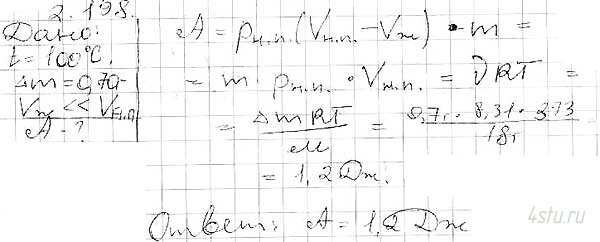 2.198.
Дано:
t = 100°C.
Δm = 0,70г
Vж << Vн.п.
A - ?
A = pн.п. (Vн.п. - Vж) · m =
= m pн.п. · Vн.п. = νRT =
= ΔmRT / M = 0,7г · 8,31 · 373 / 18г
= 1,2 Дж.
Ответ: A = 1,2 Дж
4stu.ru